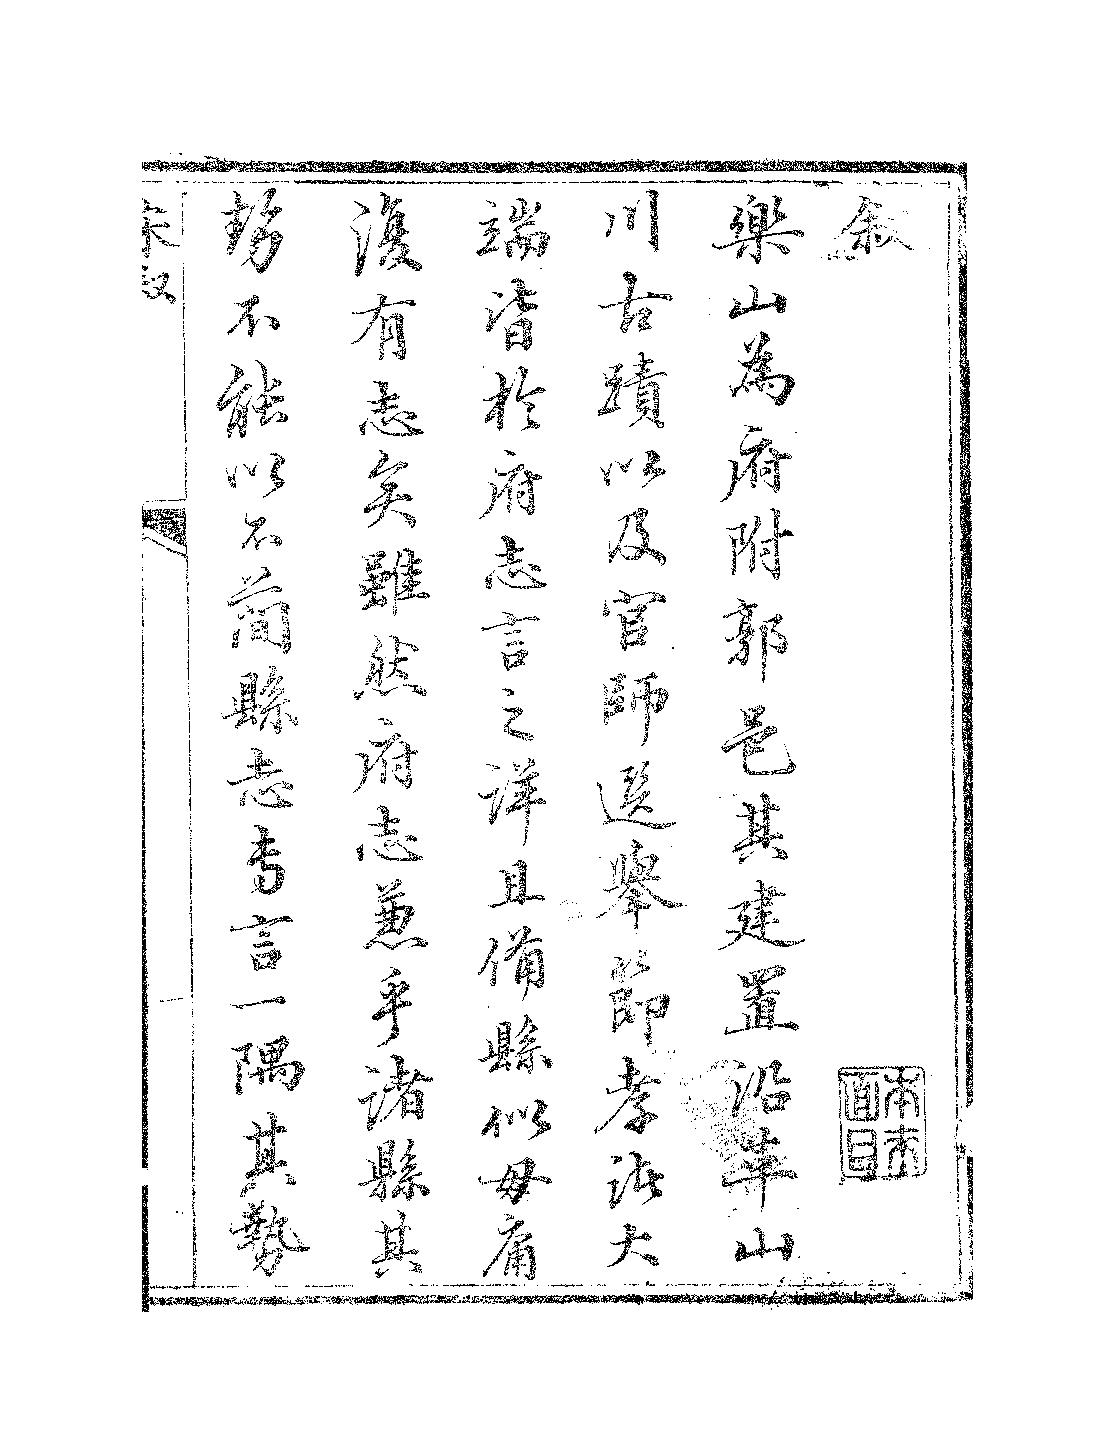 叙
樂山為府附郭邑其建置沿革山
川古蹟以及官師選舉節孝諸大
端皆於府志言之詳且備縣似毋庸
復有志矣雖然府志兼乎諸縣其
勢不能以不簡縣志專言一隅其勢
宋叙
本來面目